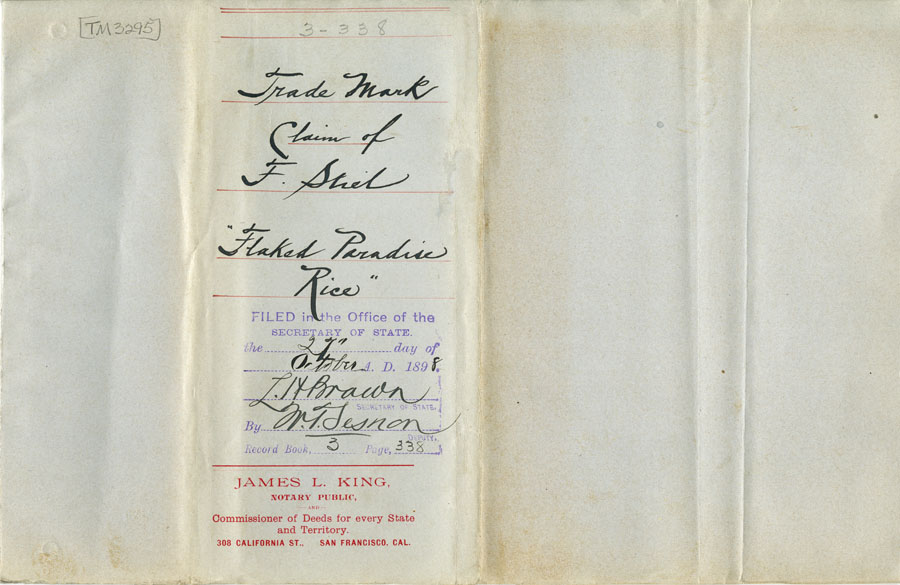 [TM3295]
3-338
Trade Mark
Claim of
F. Stiel
"Flaked Paradise
Rice"
FILED in the Office of the
SECRETARY OF STATE.
the 27" day of
October A. D. 1898.
L. H. Brown
SECRETARY OF STATE.
By W. T. Sesnon
DEPUTY.
Record Book, 3 Page, 338
JAMES L. KING,
NOTARY PUBLIC,
AND
Commissioner of Deeds for every State
and Territory.
308 CALIFORNIA ST., SAN FRANCISCO, CAL.